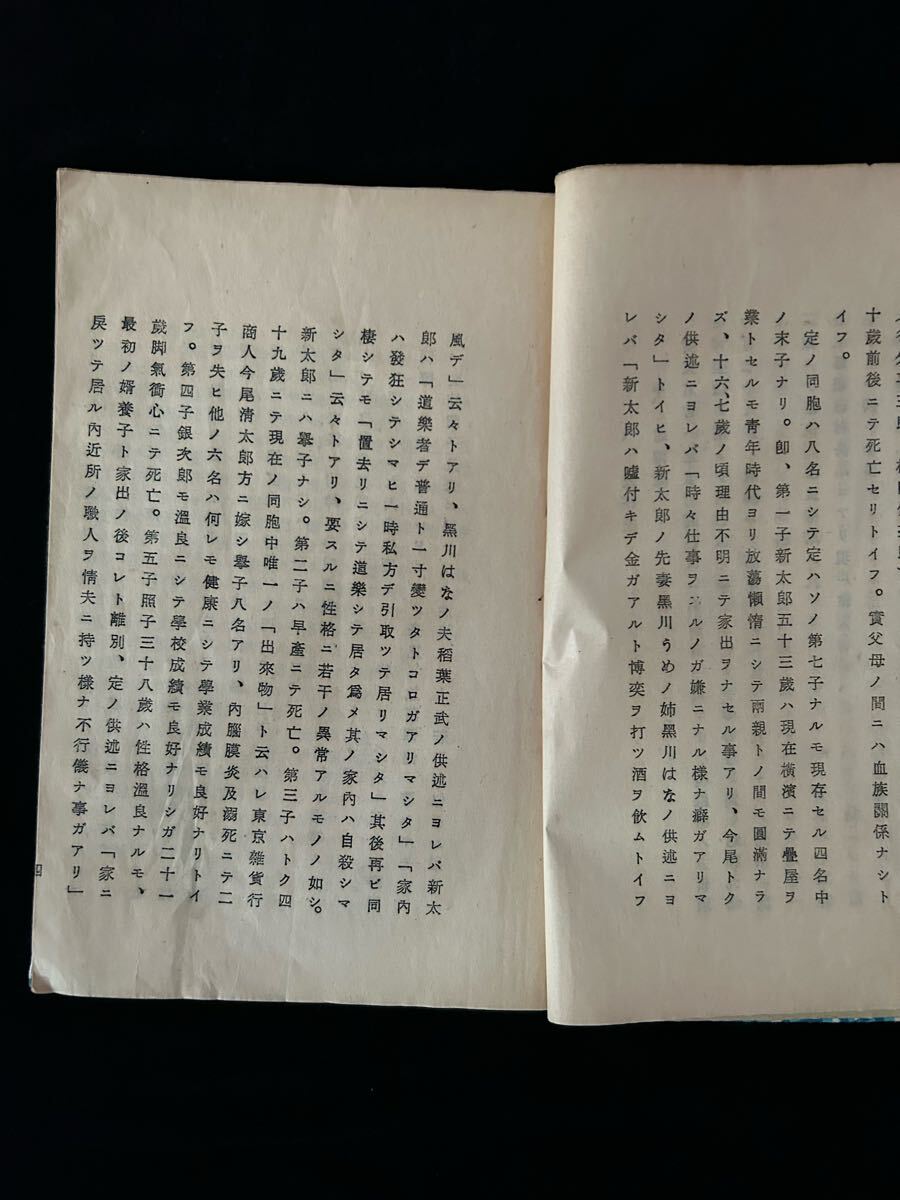 十歲前後ニテ死亡セリトイフ。實父母ノ間ニハ血族關係ナシト
イフ。
定ノ同胞ハ八名ニシテ定ハソノ第七子ナルモ現存セル四名中
ノ末子ナリ。卽、第一子新太郎五十三歲ハ現在橫濱ニテ疊屋ヲ
業トセルモ青年時代ヨリ放蕩懶惰ニシテ兩親トノ間モ圓滿ナラ
ズ、十六、七歲ノ頃理由不明ニテ家出ヲナセル事アリ、今尾トク
ノ供述ニヨレバ「時々仕事ヲスルノガ嫌ニナル樣ナ癖ガアリマ
シタ」トイヒ、新太郎ノ先妻黑川うめノ姉黑川はなノ供述ニヨ
レバ「新太郎ハ噓付キデ金ガアルト博奕ヲ打ツ酒ヲ飮ムトイフ
風デ」云々トアリ、黑川はなノ夫稻葉正武ノ供述ニヨレバ新太
郎ハ「道樂者デ普通ト一寸變ツタトコロガアリマシタ」「家內
ハ發狂シテシマヒ一時私方デ引取ツテ居リマシタ」其後再ビ同
棲シテモ「置去リニシテ道樂シテ居タ爲メ其ノ家內ハ自殺シマ
シタ」云々トアリ、要スルニ性格ニ若干ノ異常アルモノノ如シ。
新太郎ニハ擧子ナシ。第二子ハ早產ニテ死亡。第三子ハトク四
十九歲ニテ現在ノ同胞中唯一ノ「出來物」ト云ハレ東京雜貨行
商人今尾淸太郎方ニ嫁シ擧子八名アリ、內腦膜炎及溺死ニテ二
子ヲ失ヒ他ノ六名ハ何レモ健康ニシテ學業成績モ良好ナリトイ
フ。第四子銀次郎モ溫良ニシテ學校成績モ良好ナリシガ二十一
歲脚氣衝心ニテ死亡。第五子照子三十八歲ハ性格溫良ナルモ、
最初ノ婿養子ト家出ノ後コレト離別、定ノ供述ニヨレバ「家ニ
戾ツテ居ル內近所ノ職人ヲ情夫ニ持ツ樣ナ不行儀ナ事ガアリ」
四